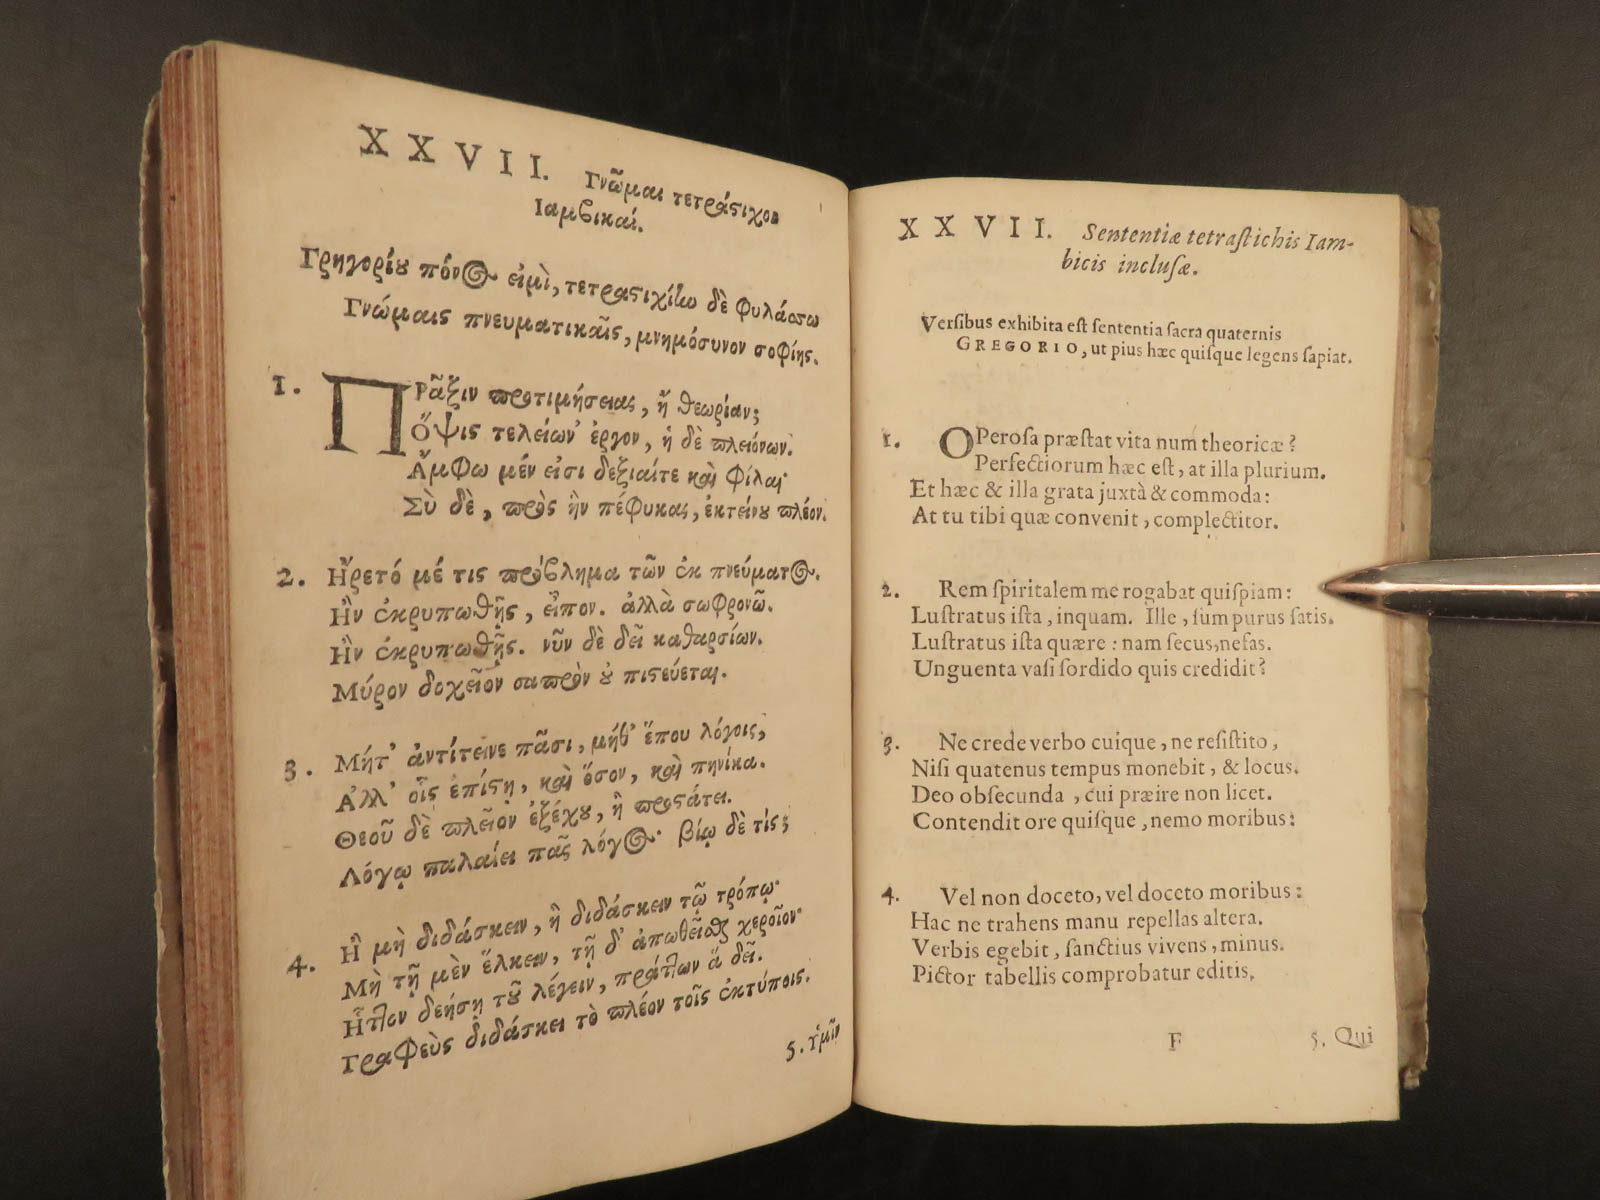 XXVII. Γνῶμαι τετράστιχοι
Ιαμβικαί.
Γρηγορίου πόνος εἰμὶ, τετραστιχίην δὲ φυλάσσω
Γνώμαις πνευματικαῖς, μνημόσυνον σοφίης.
1. ΠΡᾶξιν προτιμήσειας, ἢ θεωρίαν;
Ὄψις τελείων ἔργον, ἡ δὲ πλειόνων.
Ἄμφω μέν εἰσι δεξιαίτε καὶ φίλαι·
Σὺ δὲ, πρὸς ἣν πέφυκας, ἐκτείνου πλέον.
2. Ἤρετό μέ τις πρόβλημα τῶν ἐκ πνεύματος.
Ἢν ἐκρυπωθῇς, εἶπον. ἀλλὰ σωφρονῶ.
Ἢν ἐκρυπωθῇς. νῦν δὲ δεῖ καθαρσίων.
Μύρον δοχεῖον σαπρὸν οὐ πιστεύεται.
3. Μήτ' ἀντίτεινε πᾶσι, μήθ' ἕπου λόγοις,
Ἀλλ' οἷς ἐπίστῃ, καὶ ὅσον, καὶ πηνίκα.
Θεοῦ δὲ πλεῖον ἐξέχου, ἢ προστάτει.
Λόγῳ παλαίει πᾶς λόγος· βίῳ δὲ τίς;
4. Ἢ μὴ διδάσκειν, ἢ διδάσκειν τῷ τρόπῳ·
Μὴ τῇ μὲν ἕλκειν, τῇ δ' ἀπωθεῖσθαι χεροῖν·
Ἧττον δεήσῃ τοῦ λέγειν, πράττων ἃ δεῖ.
Γραφεὺς διδάσκει τὸ πλέον τοῖς ἐκτύποις.
5. Ὑμῖν
XXVII. Sententiæ tetrastichis Iam-
bicis inclusæ.
Versibus exhibita est sententia sacra quaternis
GREGORIO, ut pius hæc quisque legens sapiat.
1. OPerosa præstat vita num theoricæ?
Perfectiorum hæc est, at illa plurium.
Et hæc & illa grata juxtà & commoda:
At tu tibi quæ convenit, complectitor.
2. Rem spiritalem me rogabat quispiam:
Lustratus ista, inquam. Ille, sum purus satis.
Lustratus ista quære: nam secus, nefas.
Unguenta vasi sordido quis credidit?
3. Ne crede verbo cuique, ne resistito,
Nisi quatenus tempus monebit, & locus.
Deo obsecunda, cui præire non licet.
Contendit ore quisque, nemo moribus:
4. Vel non doceto, vel doceto moribus:
Hac ne trahens manu repellas altera.
Verbis egebit, sanctius vivens, minus.
Pictor tabellis comprobatur editis.
F 5. Qui